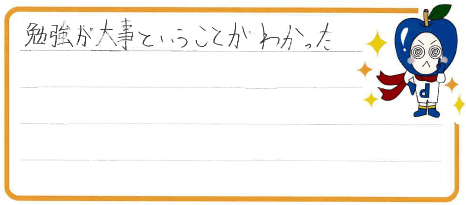 勉強が大事ということがわかった
d